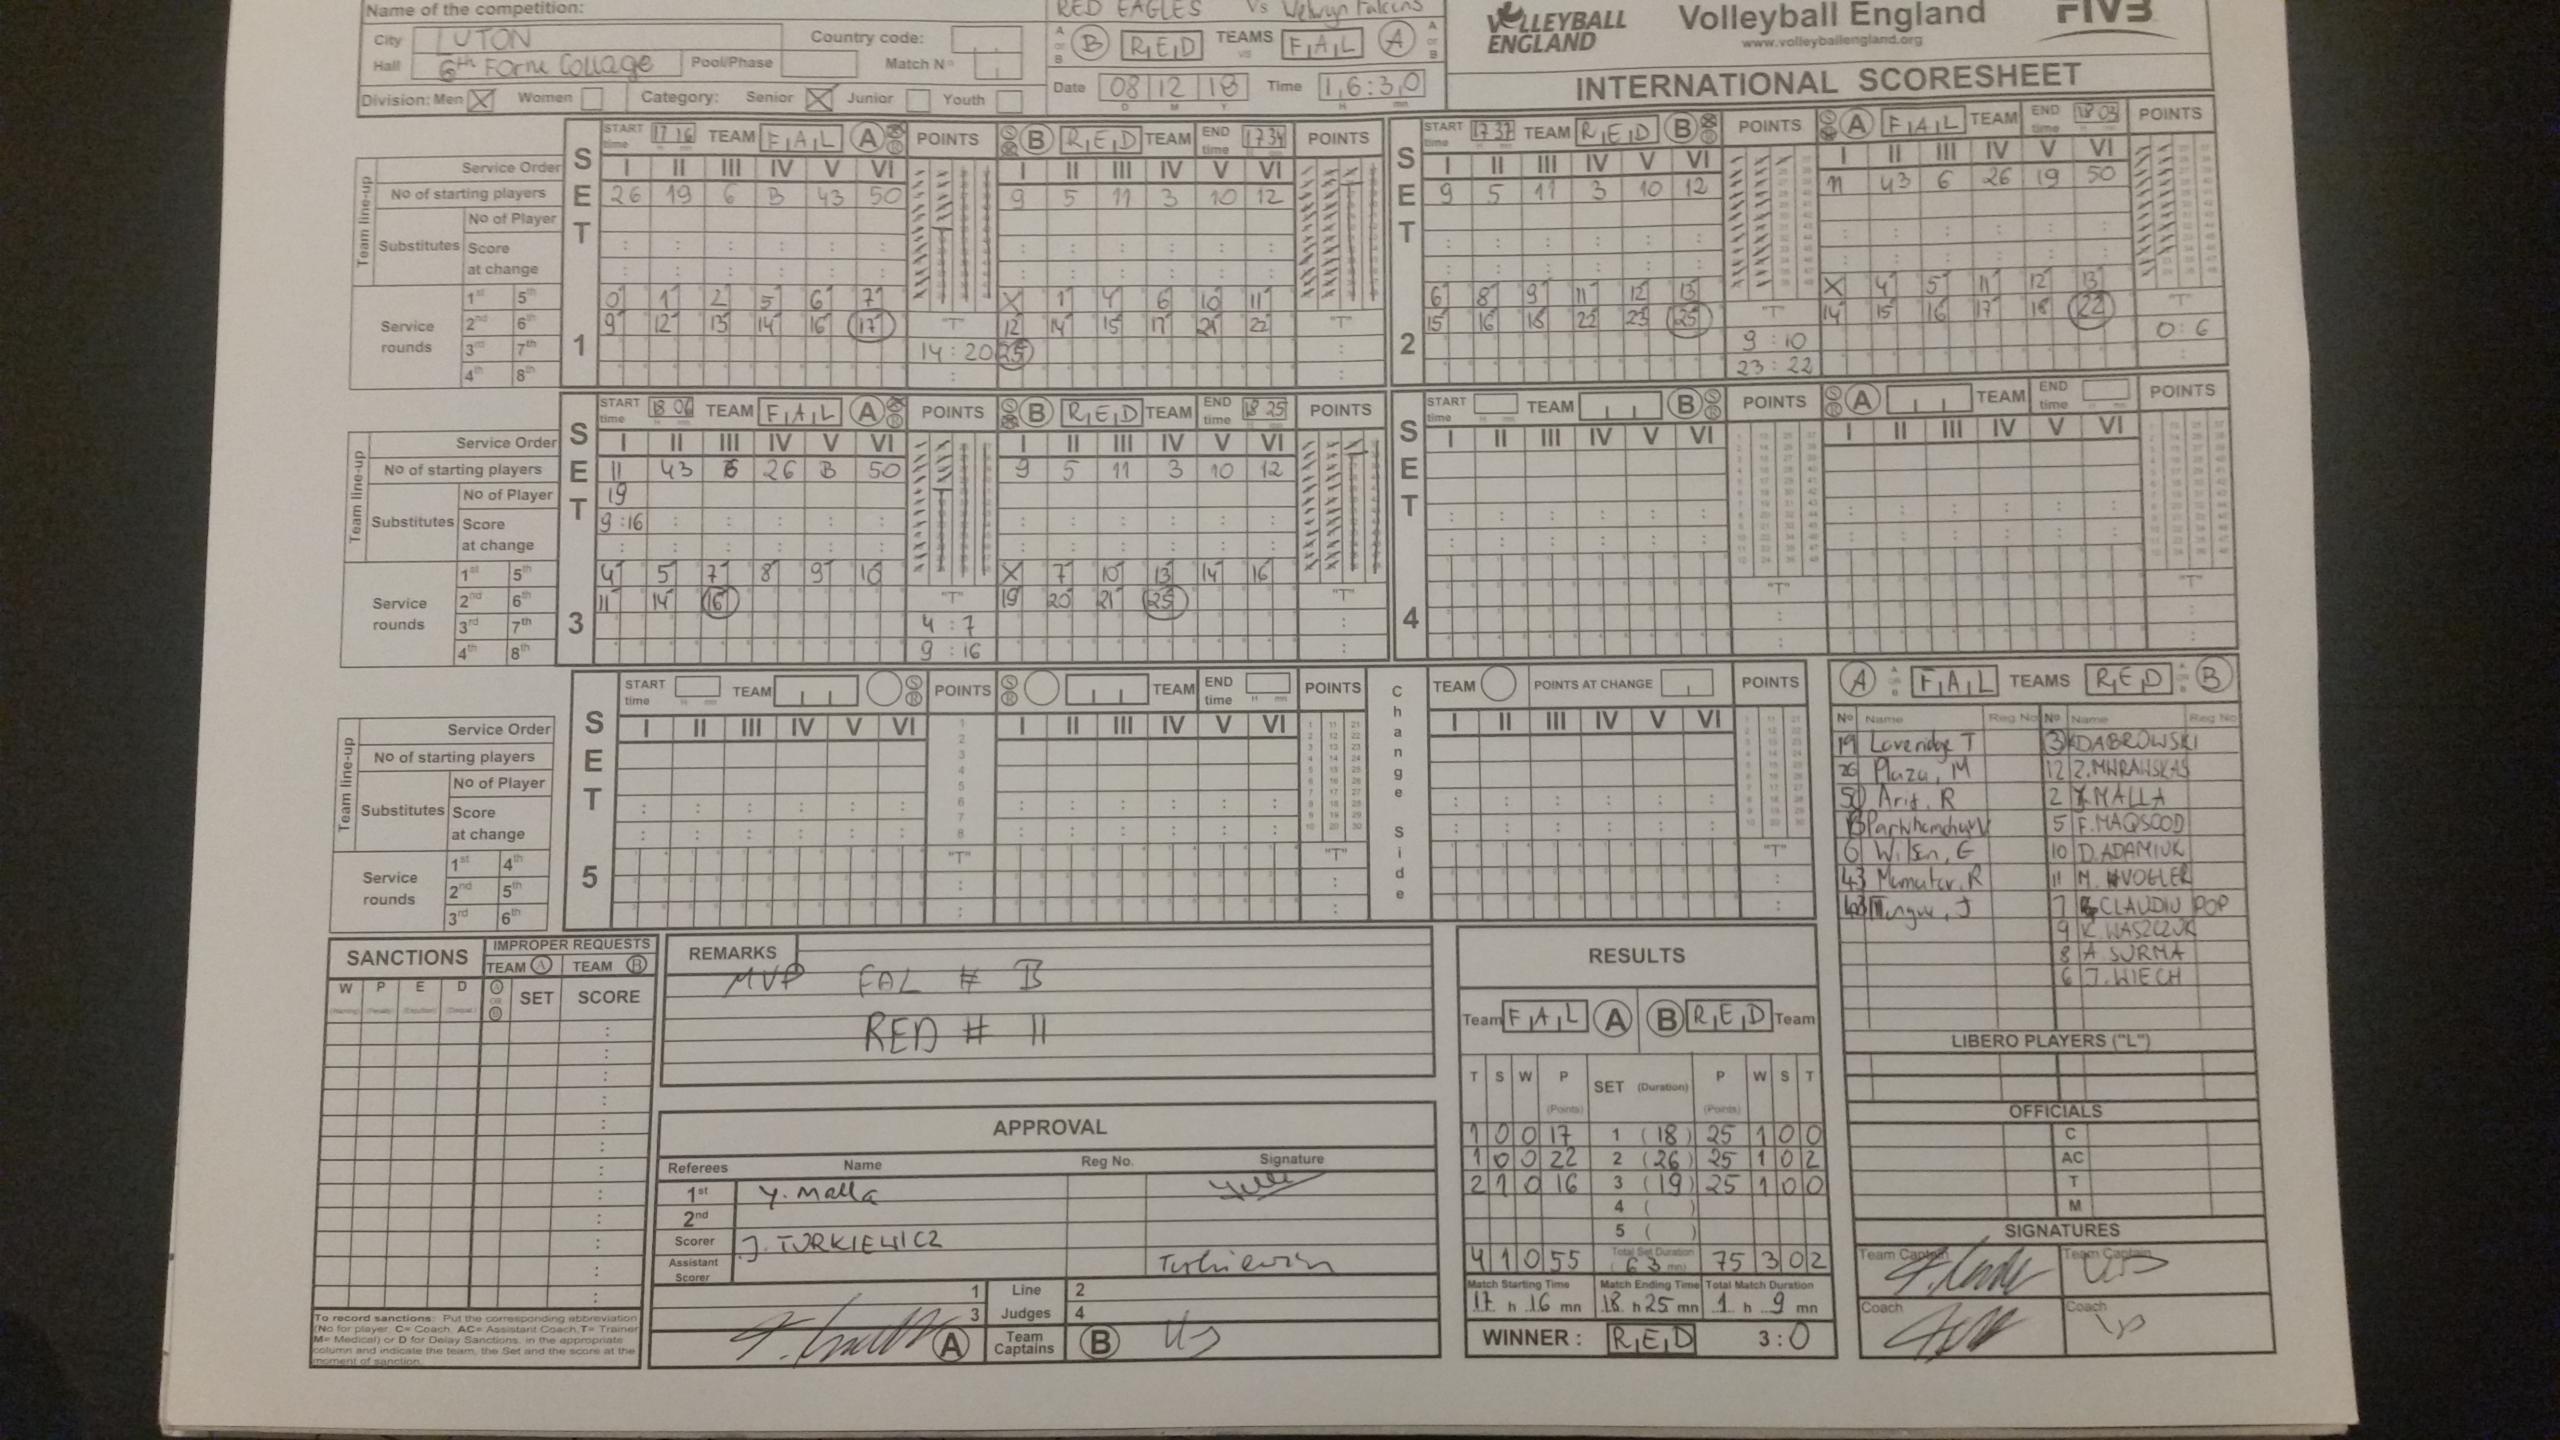 Name of the competition:
RED EAGLES Vs Welwyn Falcons
City LUTON Country code:
Hall 6th Form Collage Pool/Phase Match Nº
Division: Men X Women Category: Senior X Junior Youth
A or B B RED TEAMS vs FAL A A or B
Date 08 12 18 Time 16:30
VOLLEYBALL ENGLAND
Volleyball England
www.volleyballengland.org
FIVB
INTERNATIONAL SCORESHEET
SET 1
START time 17 16 TEAM FAL A POINTS B RED TEAM END time 17 34 POINTS
Service Order I II III IV V VI I II III IV V VI
No of starting players 26 19 6 13 43 50 9 5 11 3 10 12
Team line-up
Substitutes No of Player
Score at change
Service rounds
1st 5th 0 1 2 5 6 7 X 1 4 6 10 11
2nd 6th 9 12 13 14 16 17 "T" 12 14 15 17 21 22 "T"
3rd 7th 14:20 25
4th 8th
SET 2
START time 17 37 TEAM RED B POINTS A FAL TEAM END time 18 03 POINTS
I II III IV V VI I II III IV V VI
9 5 11 3 10 12 11 43 6 26 19 50
6 8 9 11 12 13 X 4 5 11 12 13
15 16 18 22 23 25 "T" 14 15 16 17 18 22 "T"
9:10 0:6
23:22
SET 3
START time 18 06 TEAM FAL A POINTS B RED TEAM END time 18 25 POINTS
Service Order I II III IV V VI I II III IV V VI
No of starting players 11 43 6 26 13 50 9 5 11 3 10 12
Team line-up
Substitutes No of Player 19
Score at change 9:16
Service rounds
1st 5th 4 5 7 8 9 10 X 7 10 13 14 16
2nd 6th 11 14 16 "T" 19 20 21 25 "T"
3rd 7th 4:7
4th 8th 9:16
SET 4
START time TEAM B POINTS A TEAM END time POINTS
I II III IV V VI I II III IV V VI
"T" "T"
SET 5
START time TEAM POINTS TEAM END time POINTS Change Side TEAM POINTS AT CHANGE POINTS
Service Order I II III IV V VI I II III IV V VI I II III IV V VI
No of starting players
Team line-up
Substitutes No of Player
Score at change
Service rounds
1st 4th "T" "T" "T"
2nd 5th
3rd 6th
A FAL TEAMS RED B
Nº Name Reg No Nº Name Reg No
19 Loveridge T 3 K DABROWSKI
26 Plaza, M 12
50 Arif, R 2 Y. MALLA
13 5 F. MAQSOOD
6 Wilson, G 10 D. ADAMIUK
43 11 M. VOGLER
7 CLAUDIU POP
9 K. WASZCZUK
8 A. SURMA
6 J. WIECH
LIBERO PLAYERS ("L")
OFFICIALS
C
AC
T
M
SIGNATURES
Team Captain Team Captain
Coach Coach
SANCTIONS
IMPROPER REQUESTS
TEAM A TEAM B
W P E D A OR B SET SCORE
(Warning) (Penalty) (Expulsion) (Disqual.)
To record sanctions: Put the corresponding abbreviation
(No for player, C= Coach, AC= Assistant Coach, T= Trainer
M= Medical) or D for Delay Sanctions, in the appropriate
column and indicate the team, the Set and the score at the
moment of sanction.
REMARKS
MVP FAL # 13
RED # 11
APPROVAL
Referees Name Reg No. Signature
1st Y. Malla
2nd
Scorer J. TURKIEWICZ
Assistant Scorer
1 Line 2
3 Judges 4
A Team Captains B
RESULTS
Team FAL A B RED Team
T S W P (Points) SET (Duration) P (Points) W S T
1 0 0 17 1 (18) 25 1 0 0
1 0 0 22 2 (26) 25 1 0 2
2 1 0 16 3 (19) 25 1 0 0
4 ( )
5 ( )
4 1 0 55 Total Set Duration (63 mn) 75 3 0 2
Match Starting Time Match Ending Time Total Match Duration
17 h 16 mn 18 h 25 mn 1 h 9 mn
WINNER: RED 3:0